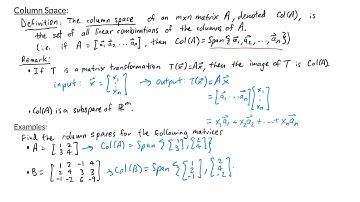 Column Space:
Definition: The column space of an m×n matrix A, denoted Col(A), is
the set of all linear combinations of the columns of A.
(i.e. if A = [a⃗₁ a⃗₂ ... a⃗ₙ], then Col(A) = Span{a⃗₁, a⃗₂, ..., a⃗ₙ})
Remark:
• If T is a matrix transformation T(x⃗)=Ax⃗, then the image of T is Col(A).
input: x⃗ = [x₁ x₂ ⋮ xₙ] → output: T(x⃗) = Ax⃗
= [a⃗₁ ... a⃗ₙ][x₁ ⋮ xₙ]
= x₁a⃗₁ + x₂a⃗₂ + ... + xₙa⃗ₙ
• Col(A) is a subspace of ℝᵐ.
Examples:
Find the column spaces for the following matrices
• A = [1 2; 3 4] → Col(A) = Span{[1; 3], [2; 4]}
• B = [1 2 -1 4; 2 4 3 3; -1 -2 6 -9] → Col(B) = Span{[1; 2; -1], [2; 4; -2],